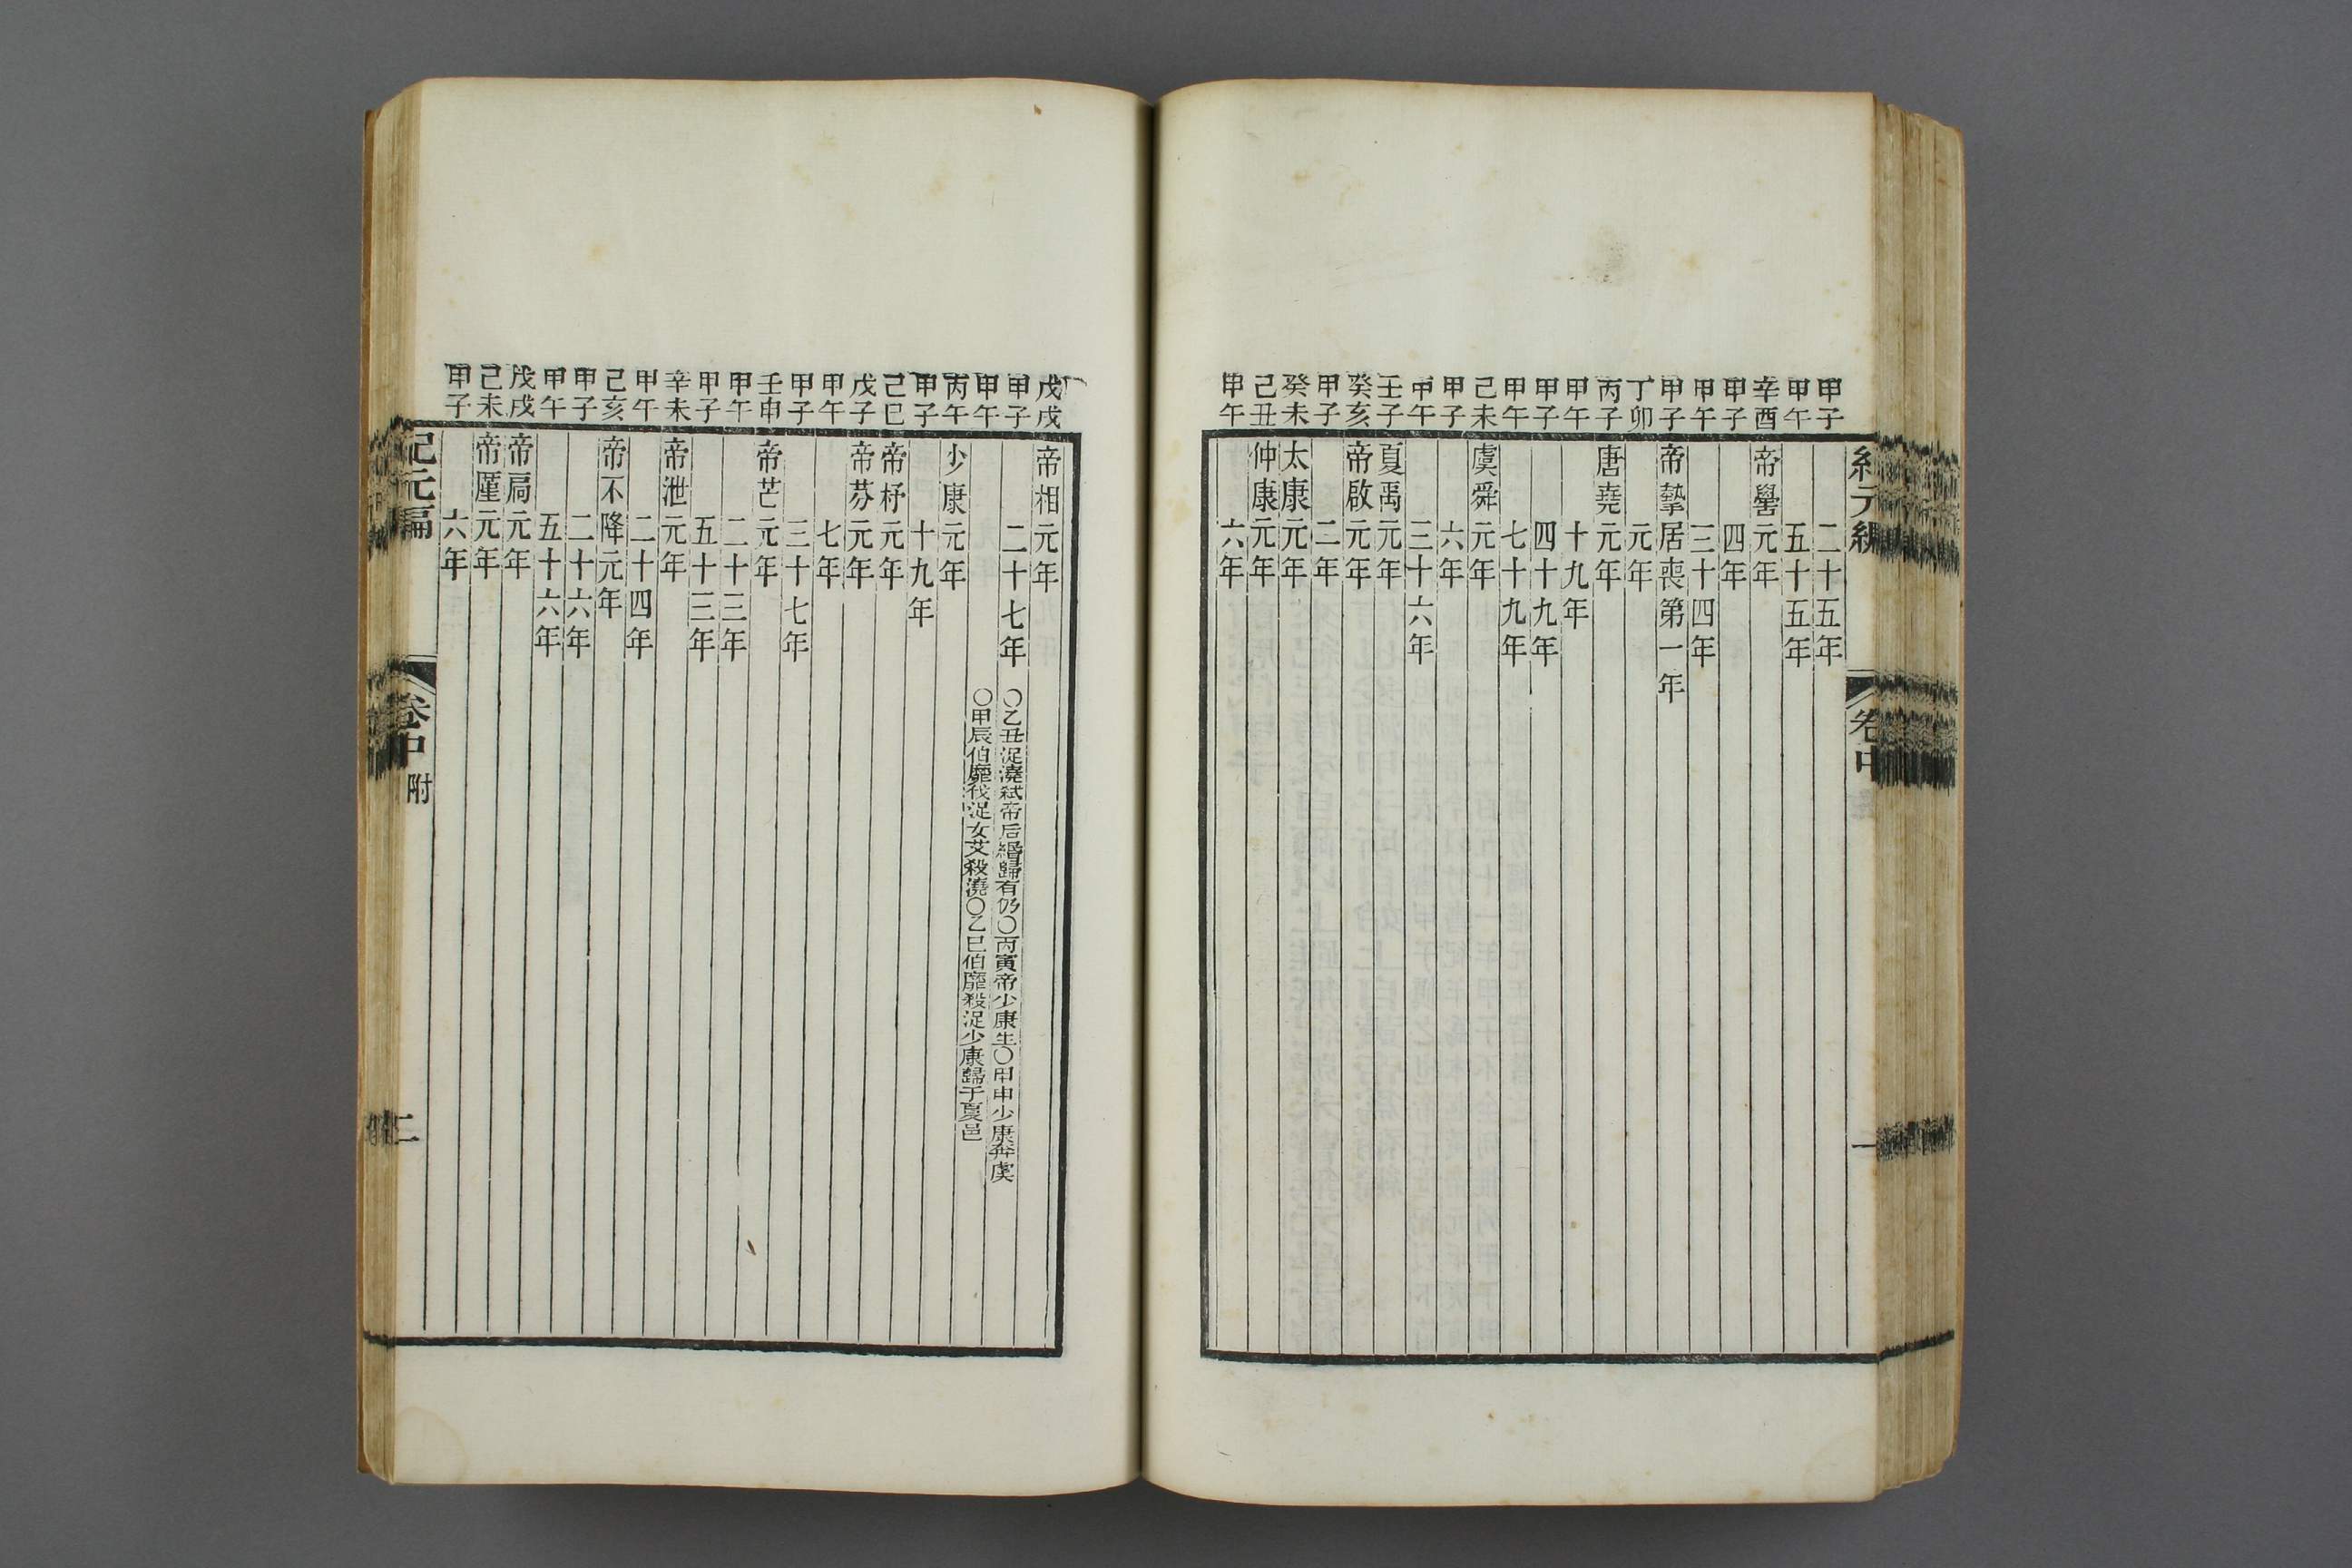 紀元編 卷中 一
甲子 二十五年
甲午 五十五年
辛酉 帝嚳元年
甲子 四年
甲午 三十四年
甲子 帝摯居喪第一年
丁卯 元年
丙子 唐堯元年
甲午 十九年
甲子 四十九年
甲午 七十九年
己未 虞舜元年
甲子 六年
甲午 三十六年
壬子 夏禹元年
癸亥 帝啟元年
甲子 二年
癸未 太康元年
己丑 仲康元年
甲午 六年
戊戌 帝相元年
甲子 二十七年 ○乙丑浞澆弒帝后緡歸有仍○丙寅帝少康生○甲申少康奔虞
甲午 ○甲辰伯靡伐浞女艾殺澆○乙巳伯靡殺浞少康歸于夏邑
丙午 少康元年
甲子 十九年
己巳 帝杼元年
戊子 帝芬元年
甲午 七年
甲子 三十七年
壬申 帝芒元年
甲午 二十三年
甲子 五十三年
辛未 帝泄元年
甲午 二十四年
己亥 帝不降元年
甲子 二十六年
甲午 五十六年
戊戌 帝扃元年
己未 帝厪元年
甲子 六年
紀元編 卷中 附 二